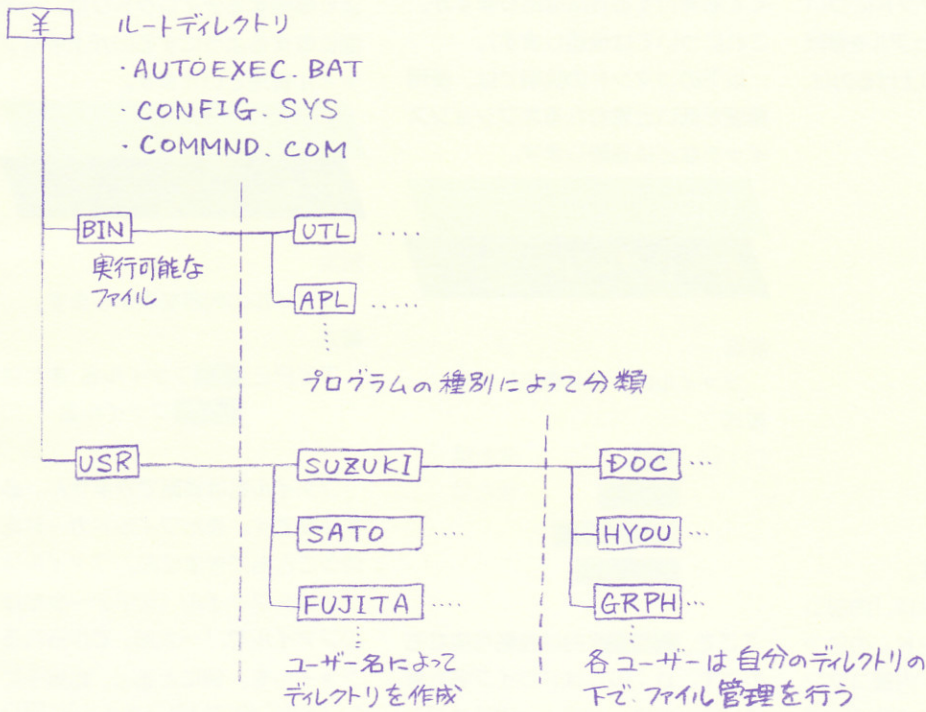 ¥ ルートディレクトリ
・AUTOEXEC.BAT
・CONFIG.SYS
・COMMND.COM
BIN UTL .....
実行可能な
ファイル
APL .....
プログラムの種別によって分類
USR SUZUKI DOC ...
SATO .... HYOU ...
FUJITA .... GRPH ...
ユーザー名によって
ディレクトリを作成
各ユーザーは自分のディレクトリの
下で、ファイル管理を行う